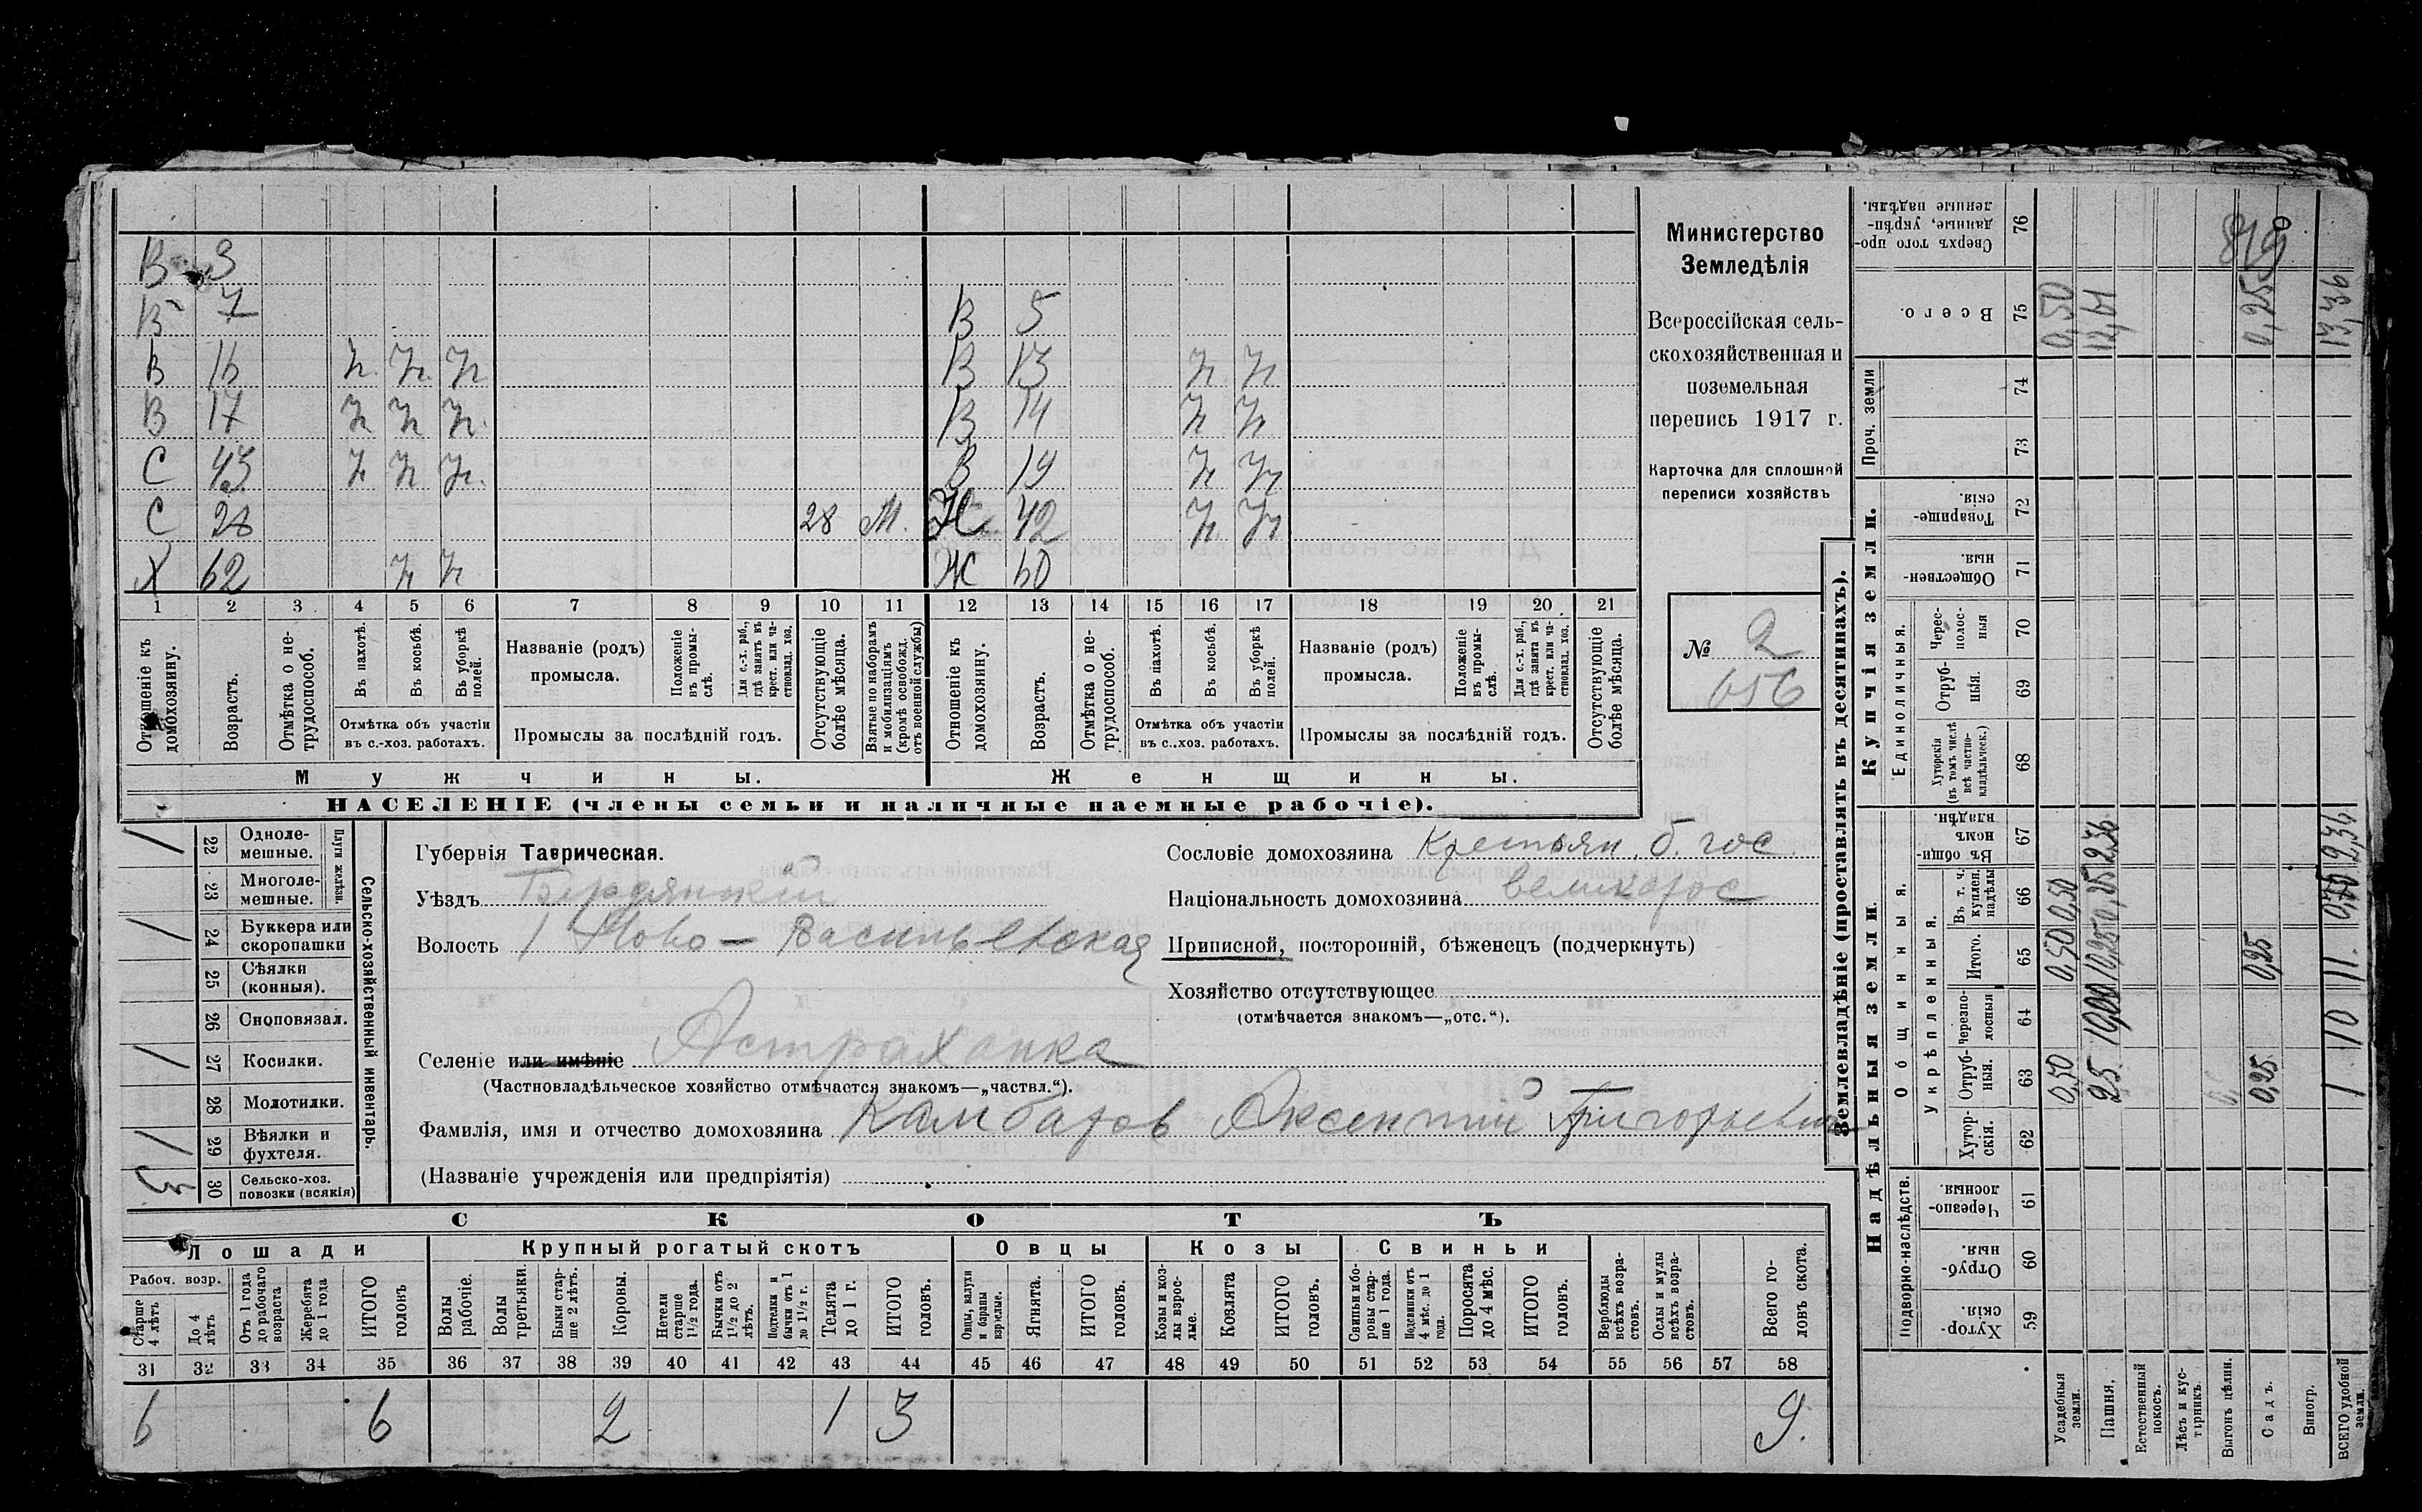 В 3
В 7 В 5
В 16 ч ч ч В 13 ч ч
В 17 ч ч ч В 14 ч ч
С 43 ч ч ч В 19 ч ч
С 28 28 М. Ж 42 ч ч
Х 62 ч ч Ж 60
1 2 3 4 5 6 7 8 9 10 11 12 13 14 15 16 17 18 19 20 21
Отношеніе къ домохозяину.
Возрастъ.
Отмѣтка о не-трудоспособ.
Въ пахотѣ.
Въ косьбѣ.
Въ уборкѣ полей.
Отмѣтка объ участіи
въ с.-хоз. работахъ.
Названіе (родъ)
промысла.
Положеніе въ промы-слѣ.
Для с.-х. раб., гдѣ занятъ въ крест. или ча-стновлад. хоз.
Промыслы за послѣдній годъ.
Отсутствующіе болѣе мѣсяца.
Взятые по наборамъ и мобилизаціямъ (кромѣ освобожд. отъ военной службы)
Отношеніе къ домохозяину.
Возрастъ.
Отмѣтка о не-трудоспособ.
Въ пахотѣ.
Въ косьбѣ.
Въ уборкѣ полей.
Отмѣтка объ участіи
въ с..хоз. работахъ.
Названіе (родъ)
промысла.
Положеніе въ промы-слѣ.
Для с.-х. раб., гдѣ занята въ крест. или ча-стновлад. хоз.
Промыслы за послѣдній годъ.
Отсутствующіе болѣе мѣсяца.
Мужчины. Женщины.
НАСЕЛЕНІЕ (члены семьи и наличные наемные рабочіе).
Министерство
Земледѣлія
Всероссійская сель-
скохозяйственная и
поземельная
перепись 1917 г.
Карточка для сплошной
переписи хозяйствъ
№ 2
656
Сельско-хозяйственный инвентарь.
Плуги желѣзн.
1 22 Одноле-мешные.
23 Многоле-мешные.
1 24 Буккера или скоропашки
25 Сѣялки (конныя).
26 Сноповязал.
1 27 Косилки.
28 Молотилки.
1 29 Вѣялки и фухтеля.
3 30 Сельско-хоз. повозки (всякія)
Губернія Таврическая.
Уѣздъ Бердянскій
Волость 1 Ново-Васильевская
Селеніе или имѣніе Астраханка
(Частновладѣльческое хозяйство отмѣчается знакомъ—„частвл.“).
Фамилія, имя и отчество домохозяина Камбаров Аксентій Григорьевич
(Названіе учрежденія или предпріятія)
Сословіе домохозяина Крестьян. б. гос
Національность домохозяина великорос
Приписной, посторонній, бѣженецъ (подчеркнуть)
Хозяйство отсутствующее
(отмѣчается знакомъ—„отс.“).
СКОТЪ
Лошади Крупный рогатый скотъ Овцы Козы Свиньи
Рабоч. возр.
Старше 4 лѣтъ
До 4 лѣтъ
Отъ 1 года до рабочаго возраста
Жеребята до 1 года
ИТОГО головъ
Волы рабочіе.
Волы третьяки.
Быки стар-ше 2 лѣтъ.
Коровы.
Нетели старше 1½ года.
Бычки отъ 1½ до 2 лѣтъ.
Подтелки и бычки отъ 1 до 1½ г.
Телята до 1 г.
ИТОГО головъ.
Овцы, валухи и бараны взрослые.
Ягнята.
ИТОГО головъ.
Козы и коз-лы взрос-лые.
Козлята
ИТОГО головъ.
Свиньи и бо-ровы стар-ше 1 года.
Подсвинки отъ 4 мѣс. до 1 года.
Поросята до 4 мѣс.
ИТОГО головъ.
Верблюды всѣхъ возра-стовъ.
Ослы и мулы всѣхъ возра-стовъ.
Всего го-ловъ скота.
31 32 33 34 35 36 37 38 39 40 41 42 43 44 45 46 47 48 49 50 51 52 53 54 55 56 57 58
6 6 2 1 3 9.
Землевладѣніе (проставлять въ десятинахъ).
Купчія земли.
Надѣльныя земли.
Проч. земли
Единоличныя.
Общинныя.
Укрѣпленныя.
Подворно-наслѣдств.
Сверхъ того про-данные, укрѣп-ленные надѣлы. 76 819
Всего. 75 0,50 12,61 0,25 13,36
74
73
Товарище-скія. 72
Обществен-ныя 71
Черес-полос-ныя 70
Отруб-ныя. 69
Хуторскія (въ томъ числѣ всѣ частно-владѣльческ.) 68
Въ общи-номъ владѣн. 67 2,36 2,36
Въ т. ч. куплен. надѣлы 66 0,50 0,25 0,75
Итого. 65 0,50 10,25 0,25 11.
черезпо-лосныя 64 10
Отруб-ныя. 63 0,50 25 0,25 1
Хутор-скія. 62
Черезпо-лосныя. 61
Отруб-ныя. 60
Хутор-скія. 59
Усадебныя земли.
Пашня.
Естественный покосъ.
Лѣсъ и кус-тарникъ.
Выгонъ цѣлин.
Садъ.
Виногр.
ВСЕГО удобной земли.